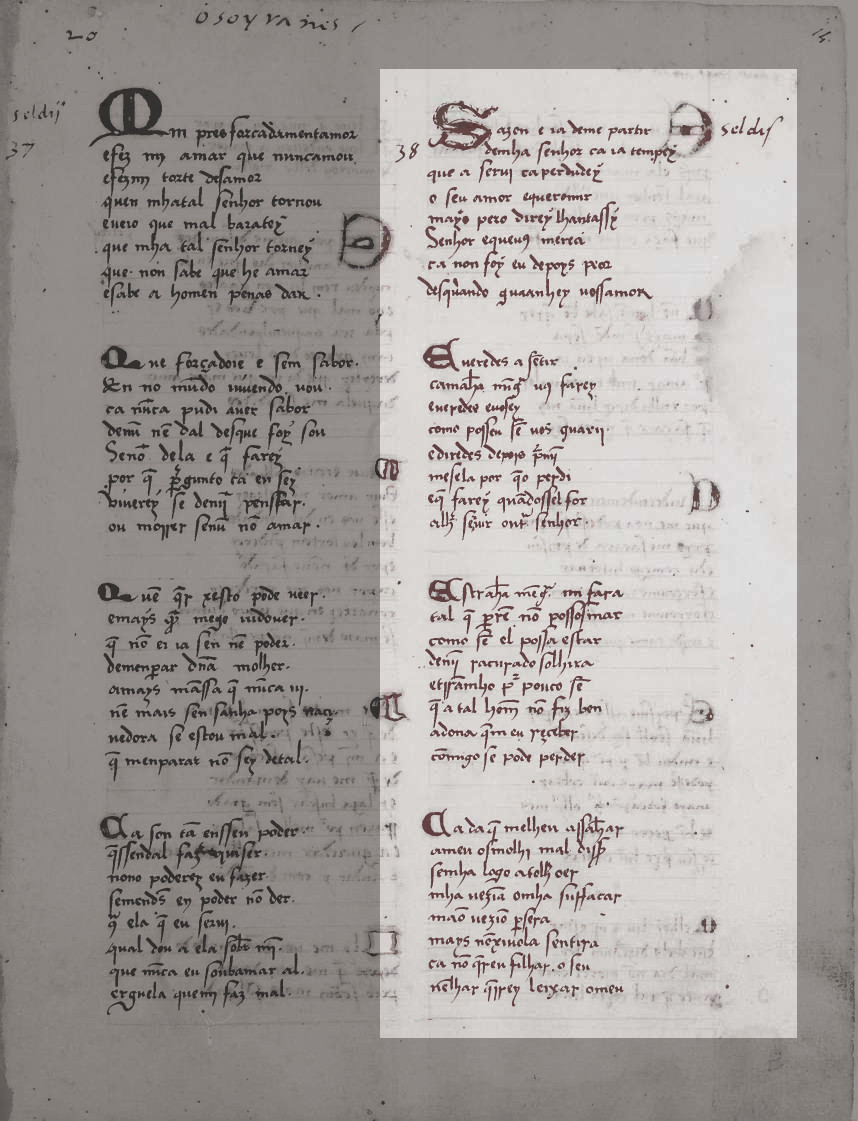 osoyranes
20
seldij
37
Qm pres forcadamentamor
efez mi amar que nuncamou
efezmi torte desamor
quen mhatal senhor tornou
eueio que mal baratey
que mha tal senhor torney
que non sabe que he amar
esabe a homen penas dar.
Que forçadoie e sem sabor.
En no mũdo uiuendo uou.
ca nũca pudi auer sabor
demĩ nẽ dal desque foy sou
Senõ dela e q̃ farey
por q̃ p̃gunto ca en sey
viuerey se demĩ penssar.
ou morrer senũ nõ amar.
Quẽ q̃r xesto pode ueer.
q̃ nõ ei ia sen nẽ poder.
demenparar dñã molher.
amays mãssa q̃ nũca ui.
nẽ mais sen sanha poys nacy
uedora se estou mal.
q̃ menparar nõ sey detal.
Ca son tã enssen poder
q̃ssendal faz quiser.
nono poderey eu fazer
semends en poder nõ der.
q̃ ela q̃ eu serui.
qual dou a ela sobr mĩ.
que nũca eu soubamar al.
erguela quemi faz mal.
38
Sazon e ia deme partir
seldis
demha senhor ca ia tempey
que a serui ca perdudey
o seu amor equeromir
mays pero direy lhantassy
Senhor equeus mereci
ca non foy eu depoys peor
desquando guaanhey uossamor
Eueredes a sẽtir
camãha mĩgᵃ uꝯ farey
eueredes euosey
como possen sẽ uos guarir
ediredes depois p̃mĩ
mesela por q̃o perdi
eq̃ farey quãdossel for
alh̃ seruir outᵃ senhor.
Estraña mẽgᵃ mi fara
tal q̃ p̃rẽ nõ possosmar
como sẽ el possa estar
denĩ racurado solhira
etrramho p̃ pouco sẽ
q̃ a tal homẽ nõ fiz ben
adona q̃m eu receber
cõmigo se pode perder
Ca da q̃ melheu assãhar
ameu osmolhi mal disp̃
semha logo atolh̃ oer
mha uezĩa omha suffacar
mãõ uezĩõ p̃sera
mays nõxiuola sentira
ca nõ q̃reu filhar. o seu
nelhar q̃rrey leixar omeu